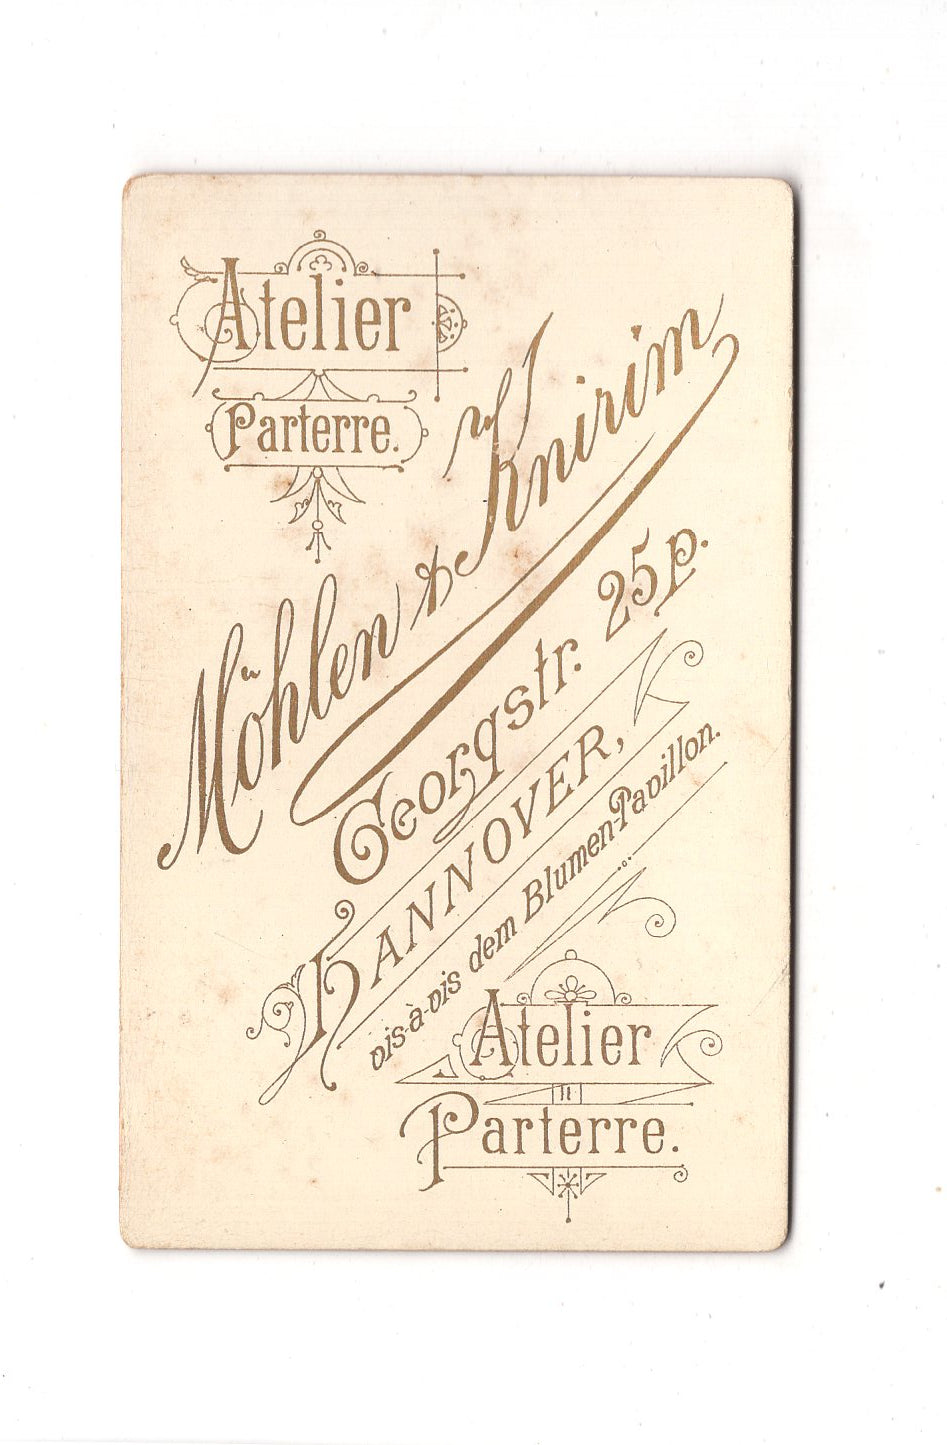 Atelier
Parterre.
Möhlen & Knirim
Georgstr. 25p.
HANNOVER,
vis-à-vis dem Blumen-Pavillon.
Atelier
Parterre.